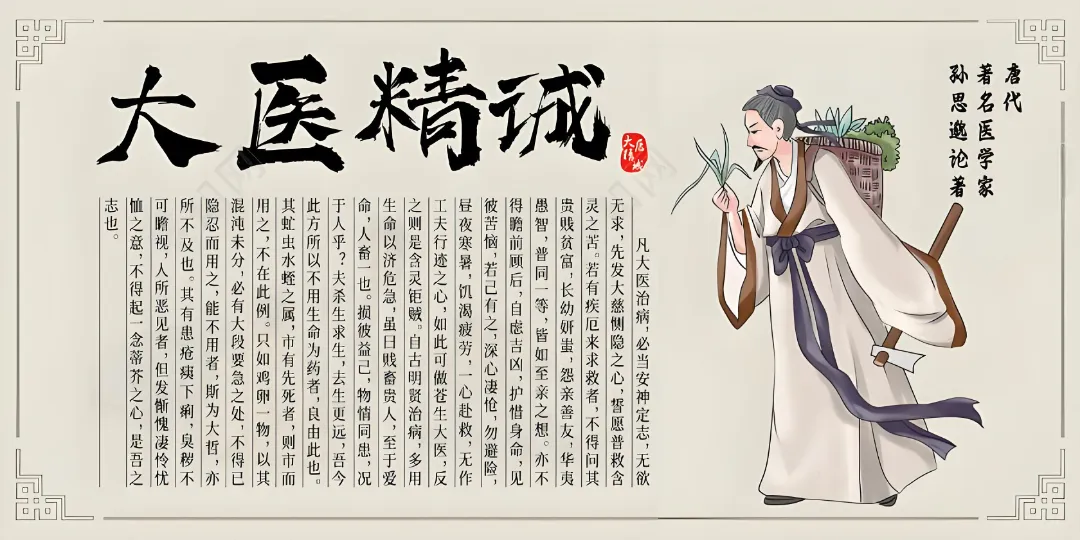 大医精诚
大医
精诚
唐代
著名医学家
孙思邈论著
凡大医治病，必当安神定志，无欲
无求，先发大慈恻隐之心，誓愿普救含
灵之苦。若有疾厄来求救者，不得问其
贵贱贫富，长幼妍蚩，怨亲善友，华夷
愚智，普同一等，皆如至亲之想。亦不
得瞻前顾后，自虑吉凶，护惜身命，见
彼苦恼，若己有之，深心凄怆，勿避险，
昼夜寒暑，饥渴疲劳，一心赴救，无作
工夫行迹之心，如此可做苍生大医，反
之则是含灵钜贼。自古明贤治病，多用
生命以济危急，虽曰贱畜贵人，至于爱
命，人畜一也。损彼益己，物情同患，况
于人乎？夫杀生求生，去生更远，吾今
此方所以不用生命为药者，良由此也。
其虻虫水蛭之属，市有先死者，则市而
用之，不在此例。只如鸡卵一物，以其
混沌未分，必有大段要急之处，不得已
隐忍而用之，能不用者，斯为大哲，亦
所不及也。其有患疮痍下痢，臭秽不
可瞻视，人所恶见者，但发惭愧凄怜忧
恤之意，不得起一念蒂芥之心，是吾之
志也。